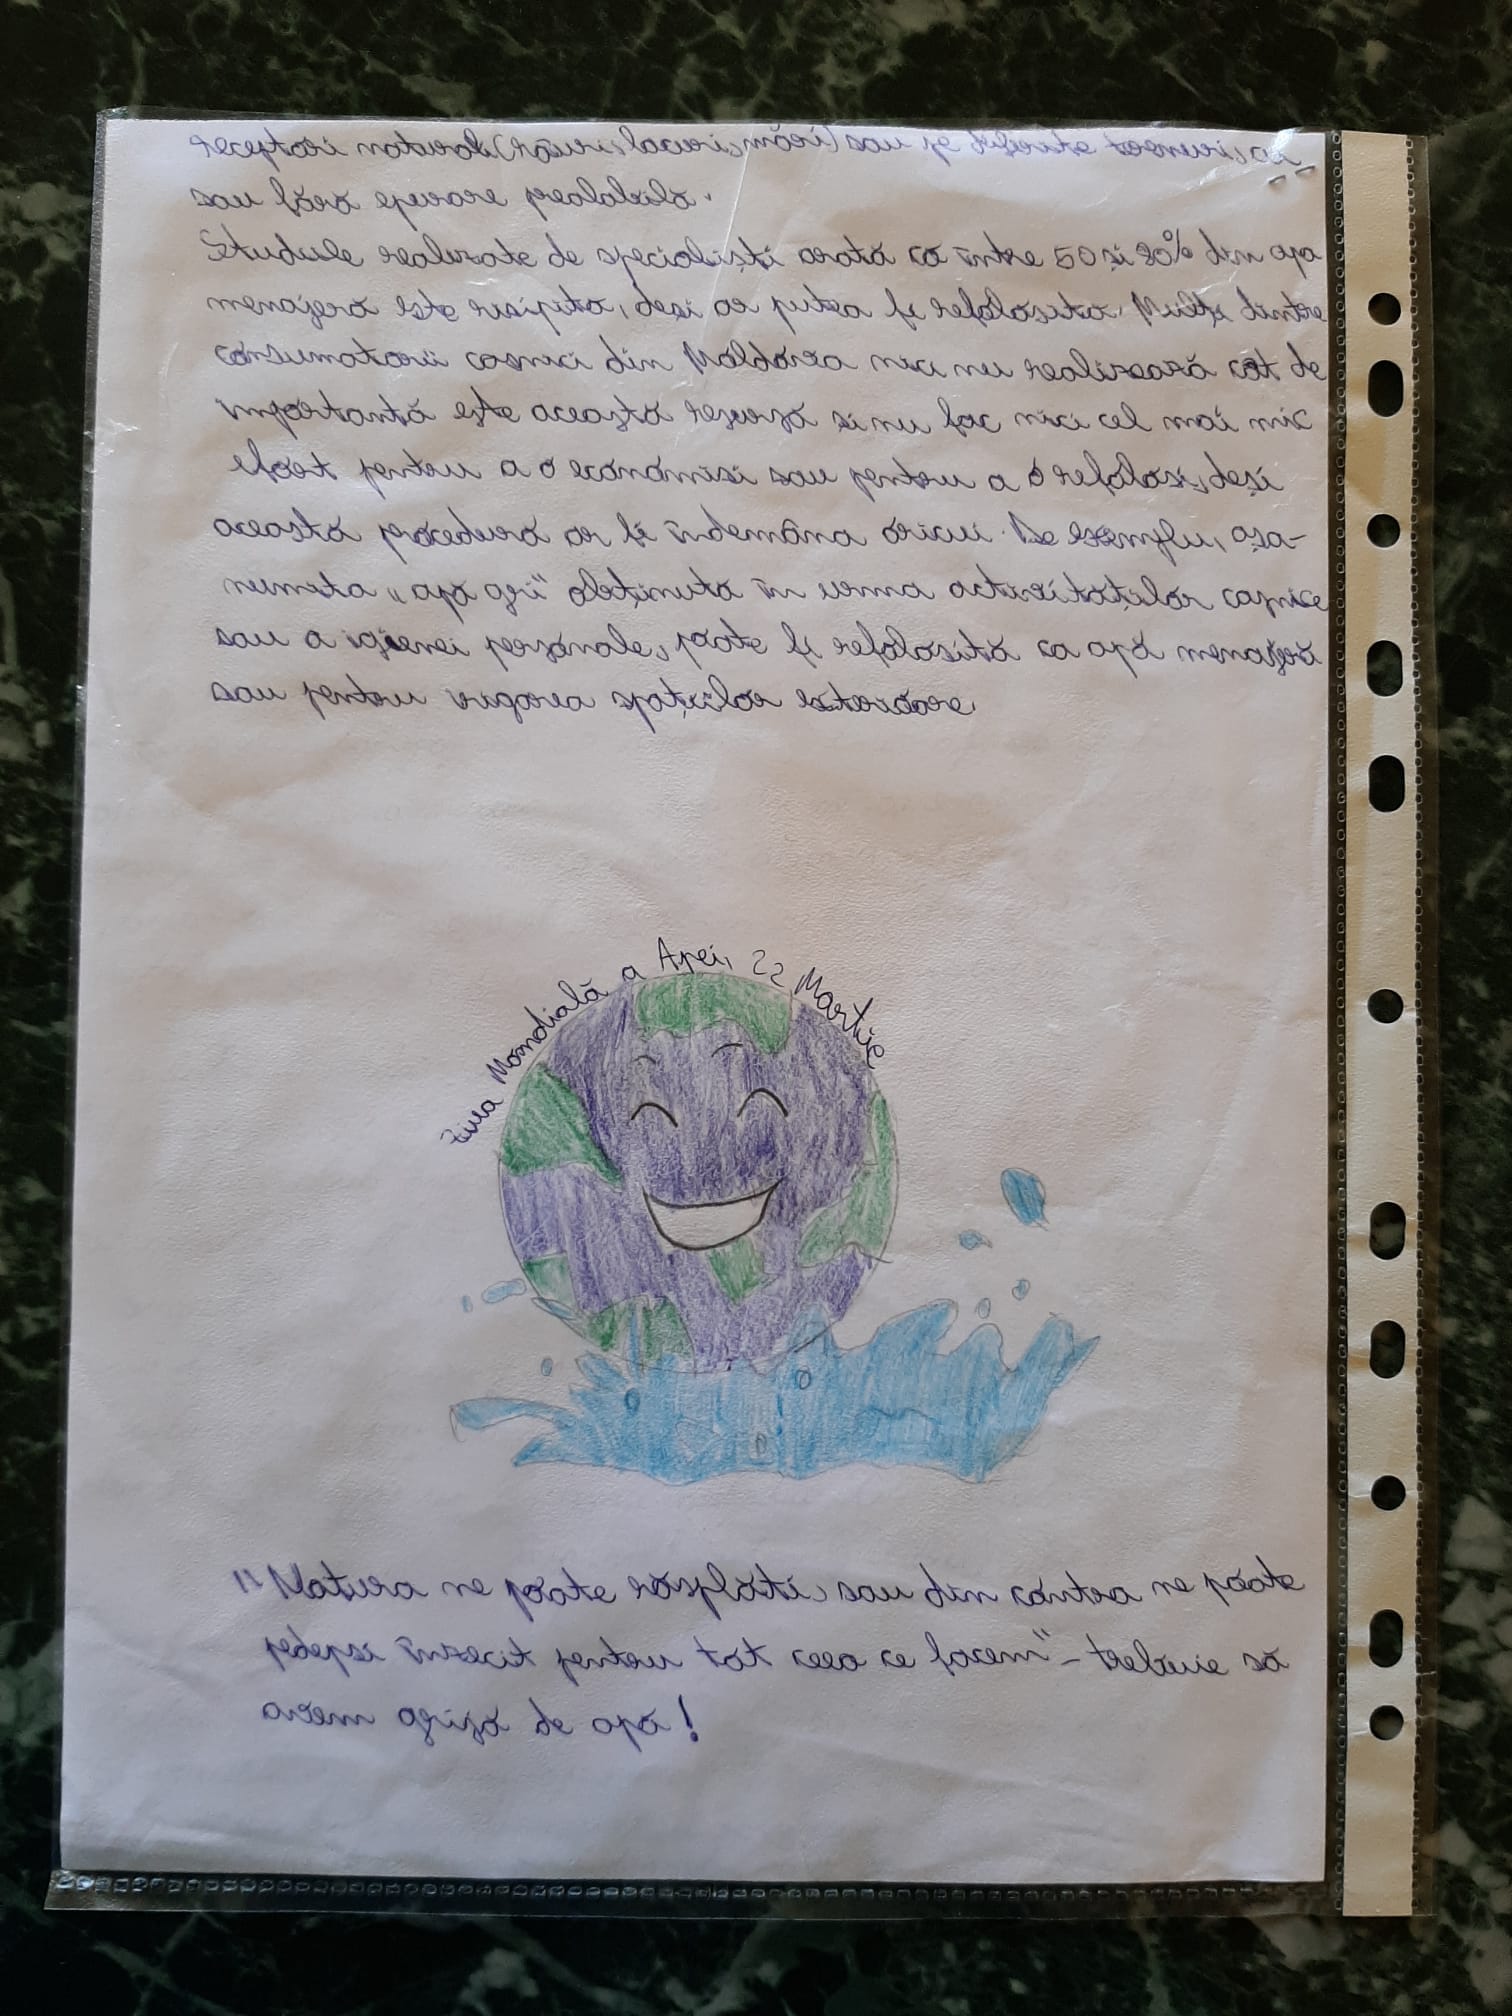 receptori naturali (râuri, lacuri, mări) sau pe diferite terenuri, cu
sau fără epurare prealabilă.
Studiile realizate de specialiști arată că între 50 și 80% din apa
menajeră este risipită, deși ar putea fi refolosită. Mulți dintre
consumatorii casnici din Moldova nici nu realizează cât de
importantă este această resursă și nu fac nici cel mai mic
efort pentru a o economisi sau pentru a o refolosi, deși
această procedură ar fi îndemâna oricui. De exemplu, așa-
numita „apă gri" obținută în urma activităților casnice
sau a igienei personale, poate fi refolosită ca apă menajeră
sau pentru irigarea spațiilor exterioare.
Ziua Mondială a Apei, 22 Martie
"Natura ne poate răsplăti, sau din contra ne poate
pedepsi înzecit pentru tot ceea ce facem" – trebuie să
avem grijă de apă!